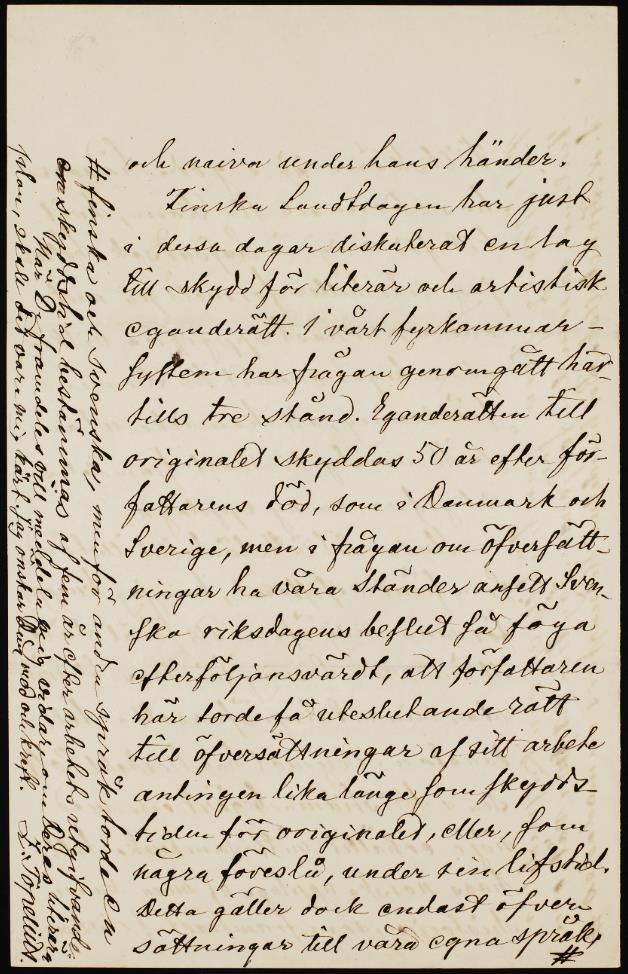 och naiva under hans händer.
Finska Landtdagen har just
i dessa dagar diskuterat en lag
till skydd för literär och artistisk
eganderätt. I vårt fyrkammar-
system har frågan genomgått här-
tills tre stånd. Eganderätten till
originalet skyddas 50 år efter för-
fattarens död, som i Danmark och
Sverige, men i frågan om öfversätt-
ningar ha våra Ständer ansett Sven-
ska riksdagens beslut så föga
efterföljansvärdt, att författaren
här torde få uteslutande rätt
till öfversättningar af sitt arbete
antingen lika länge som skydds-
tiden för originalet, eller, som
några föreslå, under sin lifstid.
Detta gäller dock endast öfver-
sättningar till våra egna språk,
#
# finska och svenska, men för andra språk torde en
en skyddstid bestämmas af fem år efter arbetets utgifvande.
När D. framdeles vill meddela mig vidare om Deras literära
plan, skall det vara mig kärt. Jag önskar Dem mod och kraft. Z. Topelius.